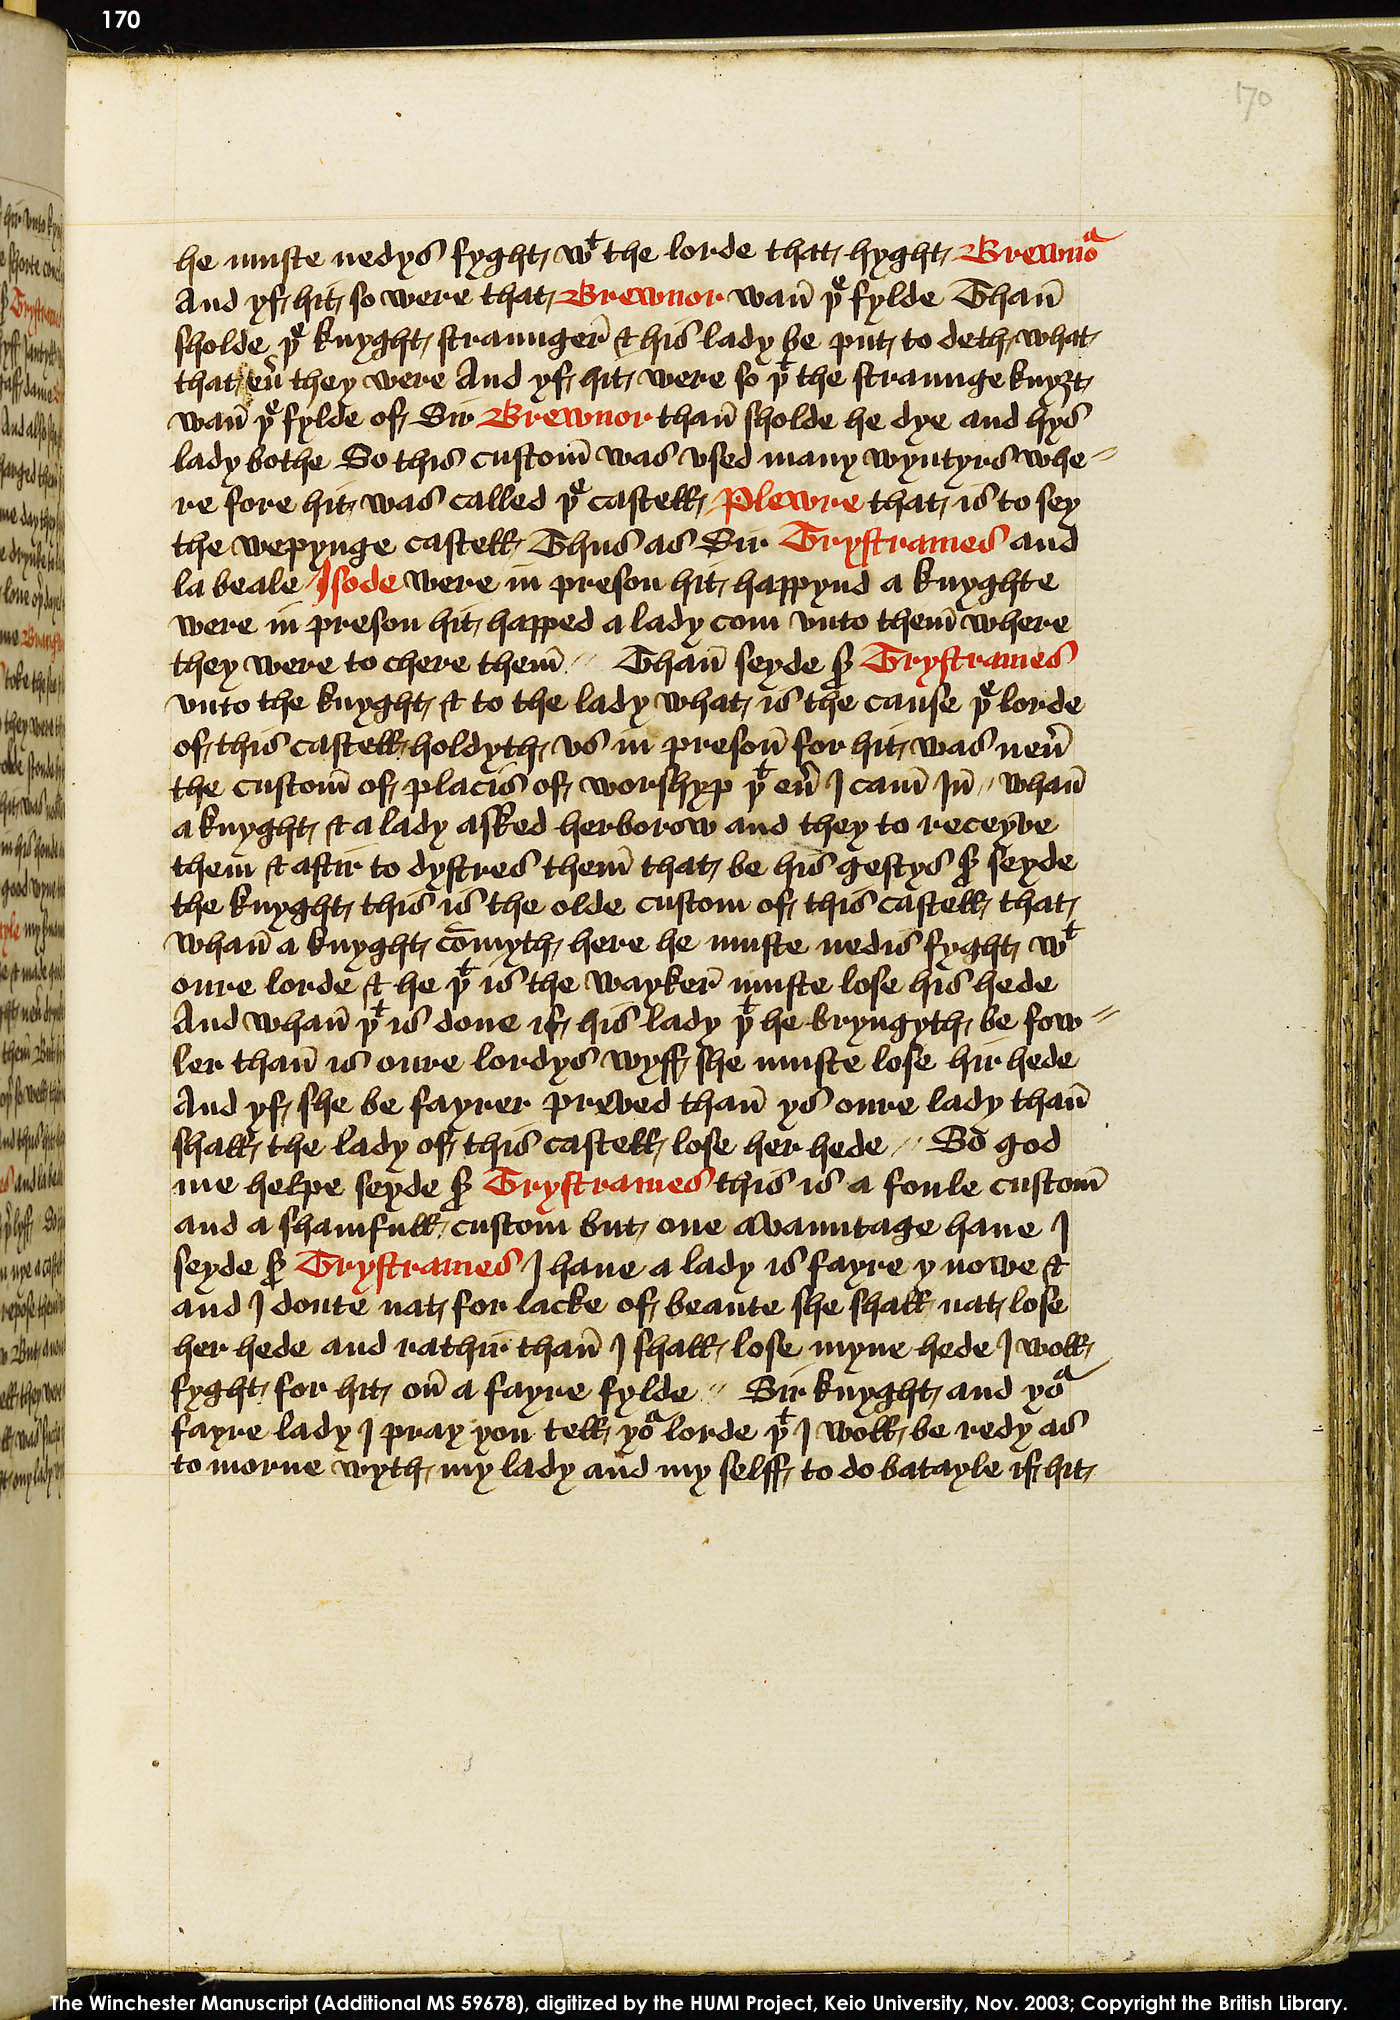 170
170
he muste nedys fyght wᵗ the lorde that hyght Brewnoᵃ
And yf hit so were that Brewnor wan̄ þᵉ fylde Than̄
sholde þᵉ knyght straunger̄ & his lady be put to deth what
that eu̾ they were And yf hit were so þᵗ the straunge knyȝt
wan̄ þᵉ fylde of Sir Brewnor than̄ sholde he dye and hys
lady bothe So this custom̄ was vsed many wyntyrs whe〃
re fore hit was called þᵉ castell Plewre that is to sey
the wepynge castell Thus as Sir Trystrames and
la beale Isode were in preson hit happynd a knyghte
were in preson hit happed a lady com vnto them̄ where
they were to chere them̄ 〃 Than̄ seyde sꝛ̄ Trystrames
vnto the knyght & to the lady what is the cause þᵉ lorde
of this castell holdyth vs in preson̄ for hit was neu̾
the custom̄ of placis of worshyp þᵗ eu̾ I cam̄ In̄ 〃 whan̄
a knyght & a lady asked herborow and they to receyve
them & aftir to dystres them̄ that be his gestys sꝛ̄ seyde
the knyght this is the olde custom of this castell that
whan̄ a knyght cōmyth here he muste nedis fyght wᵗ
oure lorde & he þᵗ is the wayker̄ muste lose his hede
And whan̄ þᵗ is done if his lady þᵗ he bryngyth be fow〃
ler than̄ is oure lordys wyff she muste lose hir hede
And yf she be fayrer preved than̄ ys oure lady than̄
shall the lady of this castell lose her hede 〃 So god
me helpe seyde sꝛ̄ Trystrames this is a foule custom̄
and a shamfull custom but one avauntage haue I
seyde sꝛ̄ Trystrames I haue a lady is fayre y nowe &
and I doute nat for lacke of beaute she shall nat lose
her hede and rathir than̄ I shall lose myne hede I woll
fyght for hit on̄ a fayre fylde 〃 Sir knyght and yoᵃ
fayre lady I pray you tell yoᵃ lorde þᵗ I woll be redy as
to morne wyth my lady and my selff to do batayle if hit
The Winchester Manuscript (Additional MS 59678), digitized by the HUMI Project, Keio University, Nov. 2003; Copyright the British Library.